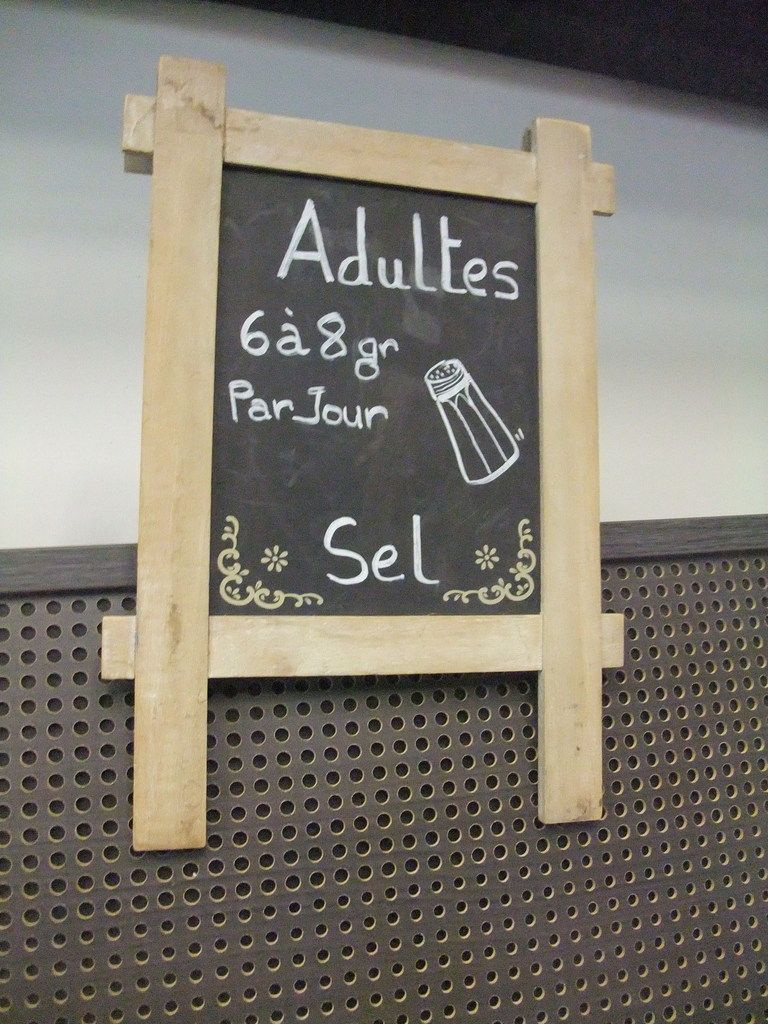 Adultes
6 à 8 gr
Par Jour
Sel